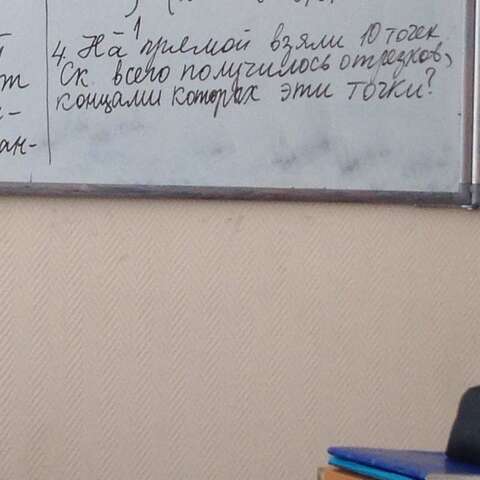 4. На 1 прямой взяли 10 точек
Ск всего получилось отрезков,
концами которых эти точки?
т
ан-